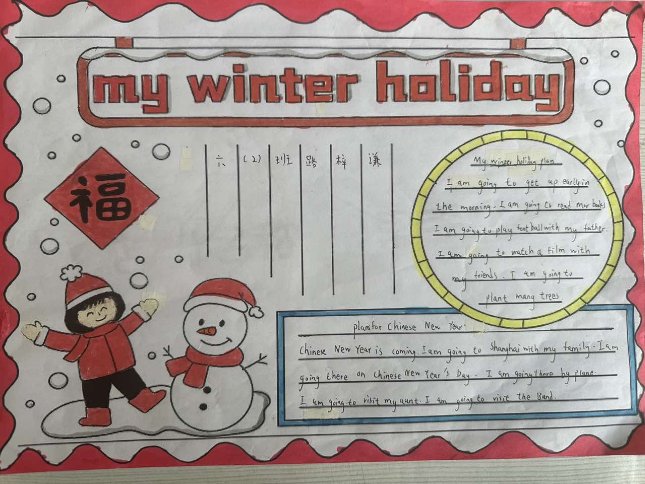 my winter holiday
福
六(2)班 路梓谦
My winter holiday plan
I am going to get up early in
the morning. I am going to read mor books
I am going to play football with my father
I am going to match a Film with
my friends. I am going to
plant mang trees
plansfor Chinese New Year
Chinese New Year is coming. I am going to Shanghai with my family. I am
going there on Chinese New Year's Day. I am going there by plane
I am going to visit my aunt. I am going to visit the Bund.